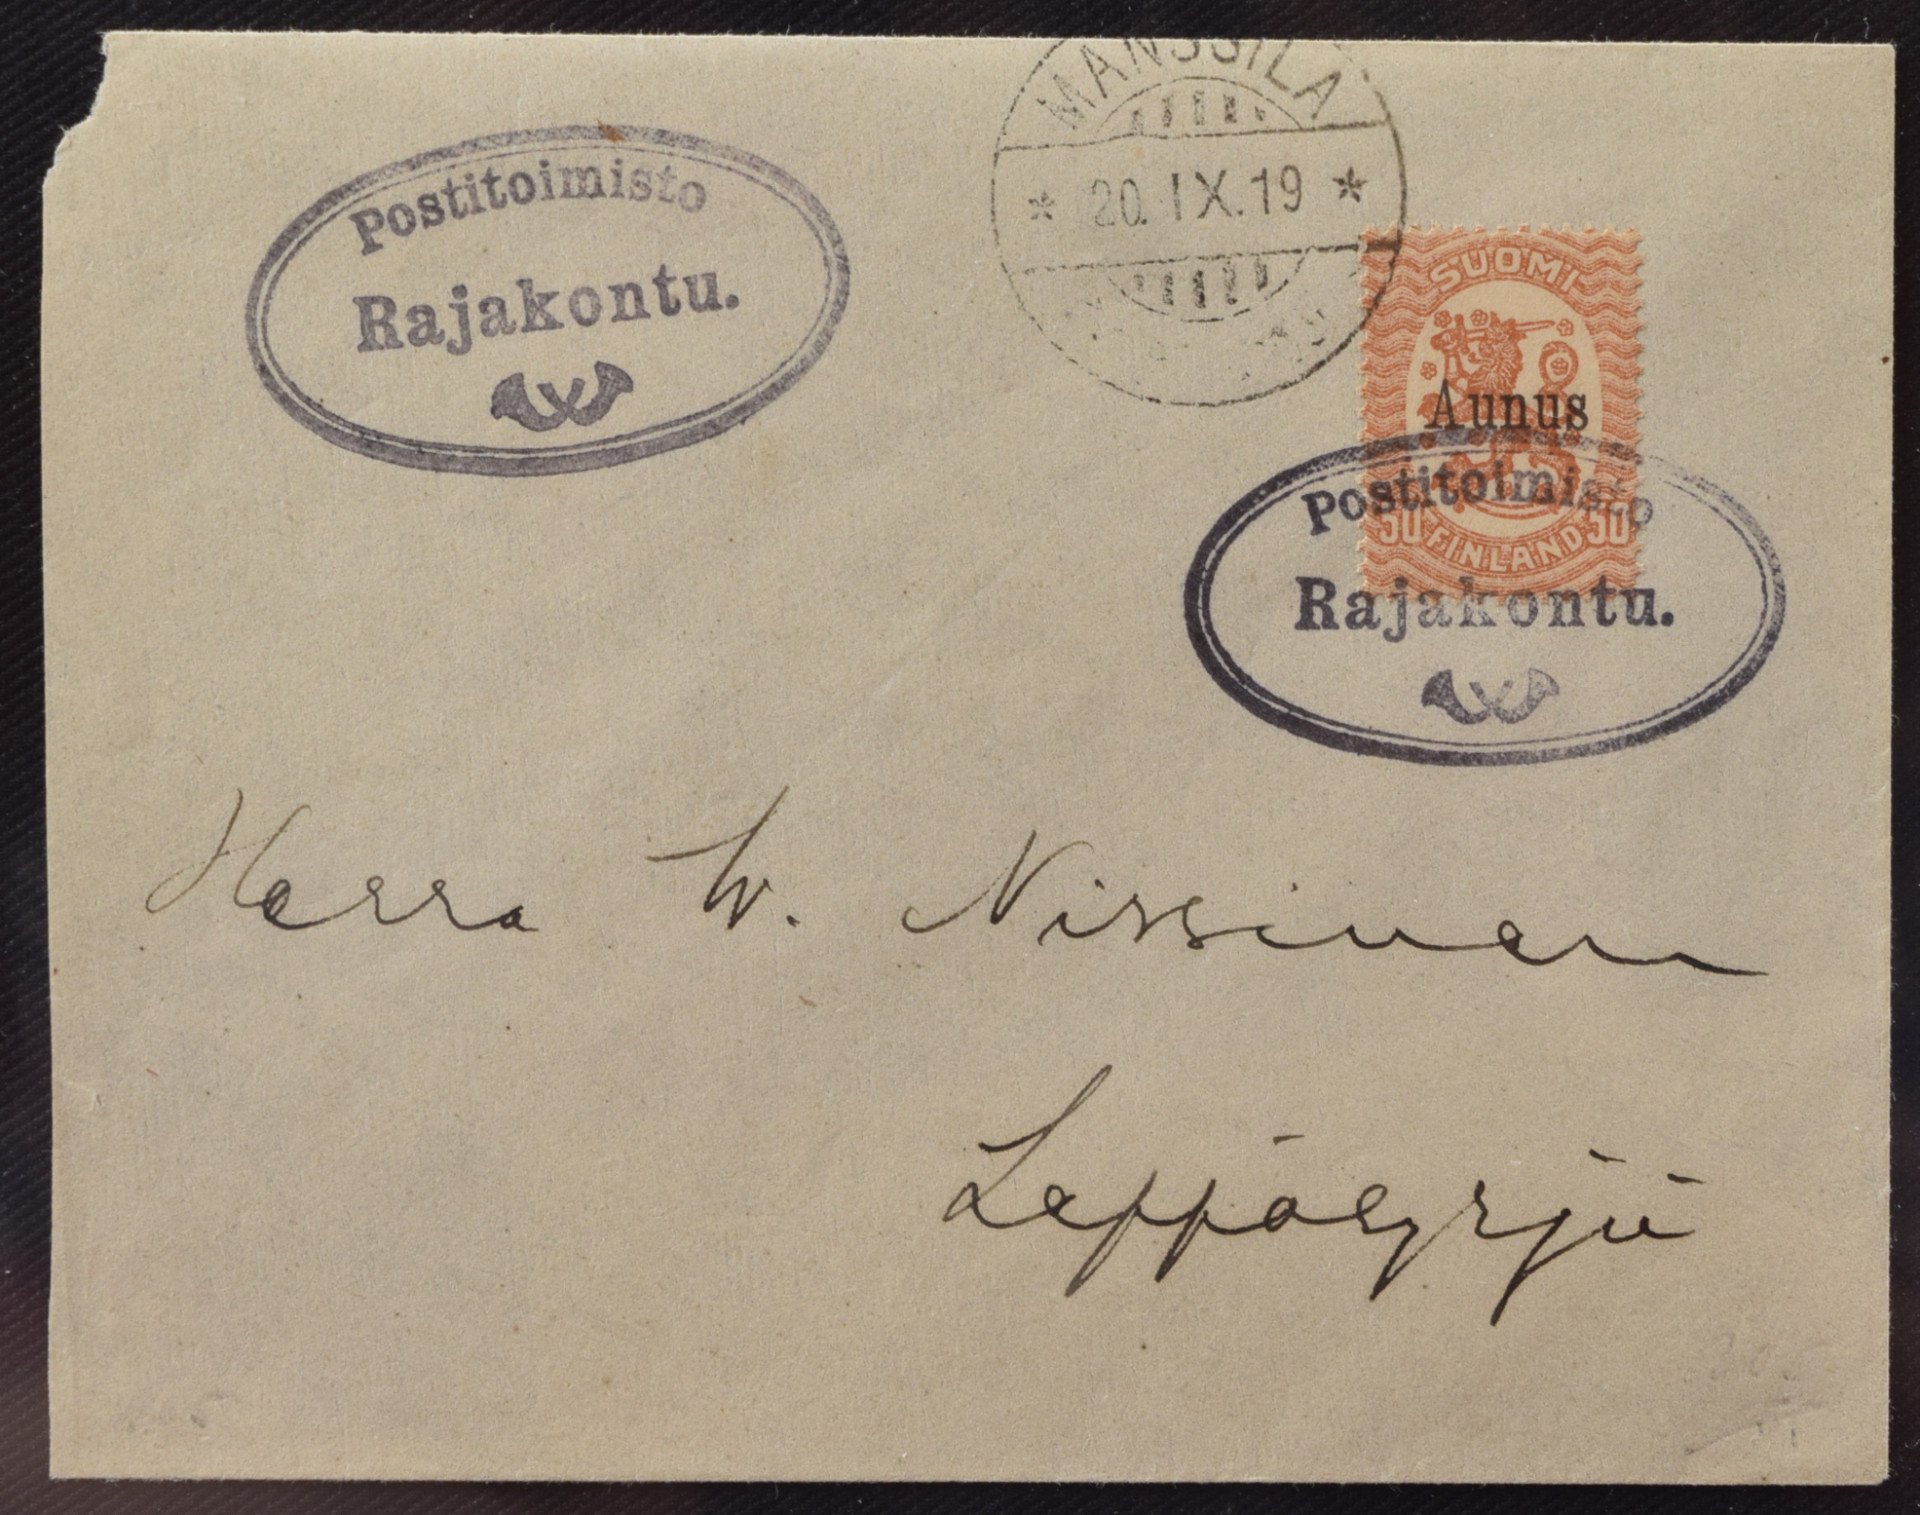 MANSSILA
* 20.IX.19 *
Postitoimisto
Rajakontu.
SUOMI
Aunus
50 FINLAND 50
Postitoimisto
Rajakontu.
Herra W. Nissinen
Leppäsyrjä